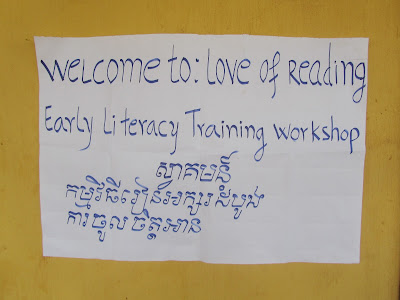 Welcome to: Love of Reading
Early Literacy Training Workshop
ស្វាគមន៍
កម្មវិធីរៀនអក្សរដំបូង
ការចូលចិត្តអាន